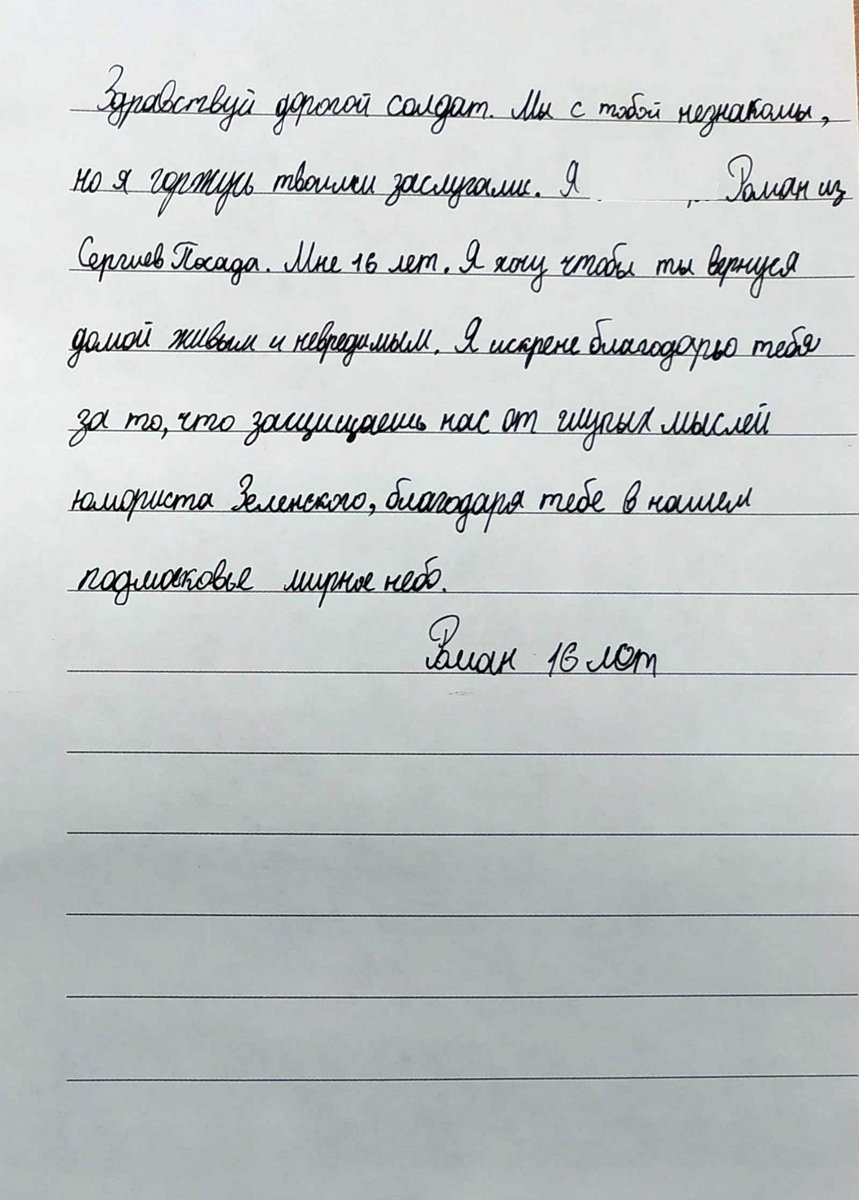 Здравствуй дорогой солдат. Мы с тобой незнакомы,
но я горжусь твоими заслугами. Я , Роман из
Сергиев Посада. Мне 16 лет. Я хочу чтобы ты вернуся
домой живым и невредимым. Я искрене благодарью тебя
за то, что защищаешь нас от глупых мыслей
юмориста Зеленского, благодаря тебе в нашем
подмосковье мирное небо.
Роман 16 лет